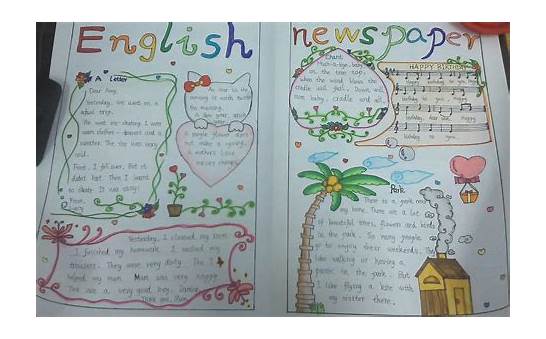 English newspaper
A Letter
Dear Amy,
Yesterday, we went on a
school trip.
We went ice-skating. I wore
warm clothes - trousers and a
sweater. The ice was very
cold.
First, I fell over. But it
didn't hurt. Then I learned
to skate. It was easy!
From,
Lucy
An hour in the
morning is worth two in
the evening.
A single flower does
not make a spring.
A mother's love
never changes.
Yesterday, I cleaned my room.
I finished my homework. I washed my
trousers. They were very dirty. The I
helped my mum. Mum was very happy.
You are a very good boy, Jamie.
Thank you, Mum.
Chant
Rock-a-bye, baby
on the tree top,
when the wind blows the
cradle will fall. Down will
come baby, cradle and all.
HAPPY BIRTHDAY
Happy birthday to you, happy
birthday to you, happy
birthday, dear Happy
birthday to you.
Park
There is a park near
my home. There are a lot
of beautiful trees, flowers and birds
in the park. So many people
go to enjoy their weekends. They
like walking or having a
picnic in the park. But
I like flying a kite with
my sister there.